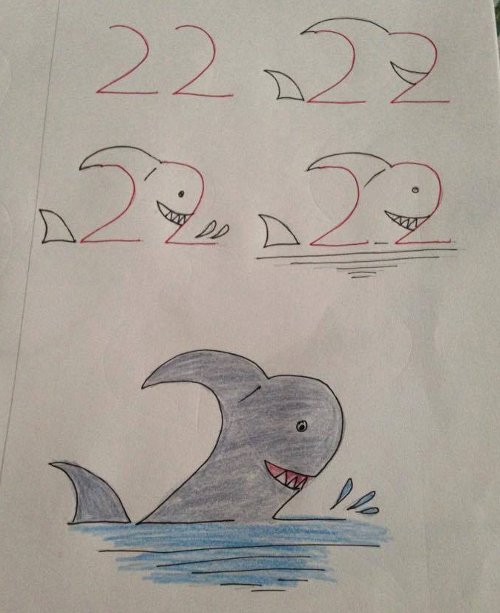 22
22
22
22